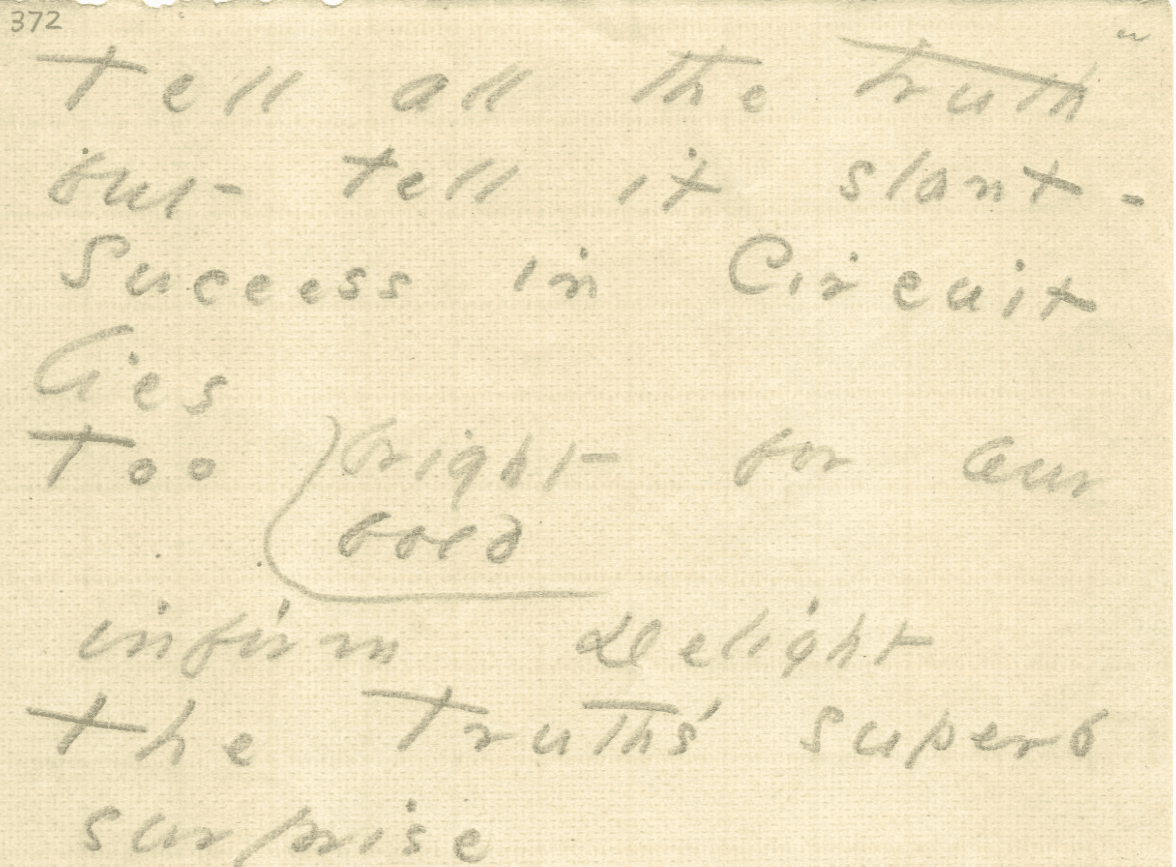 372
Tell all the truth
but tell it slant -
Success in Circuit
lies
Too bright for our
bold
infirm Delight
The Truth's superb
surprise